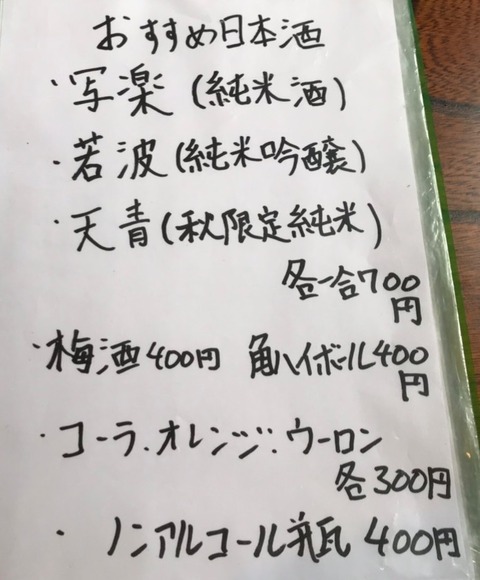 おすすめ日本酒
・写楽(純米酒)
・若波(純米吟醸)
・天青(秋限定純米)
各一合700
円
・梅酒400円 角ハイボール400
円
・コーラ.オレンジ.ウーロン
各300円
・ノンアルコール瓶 400円